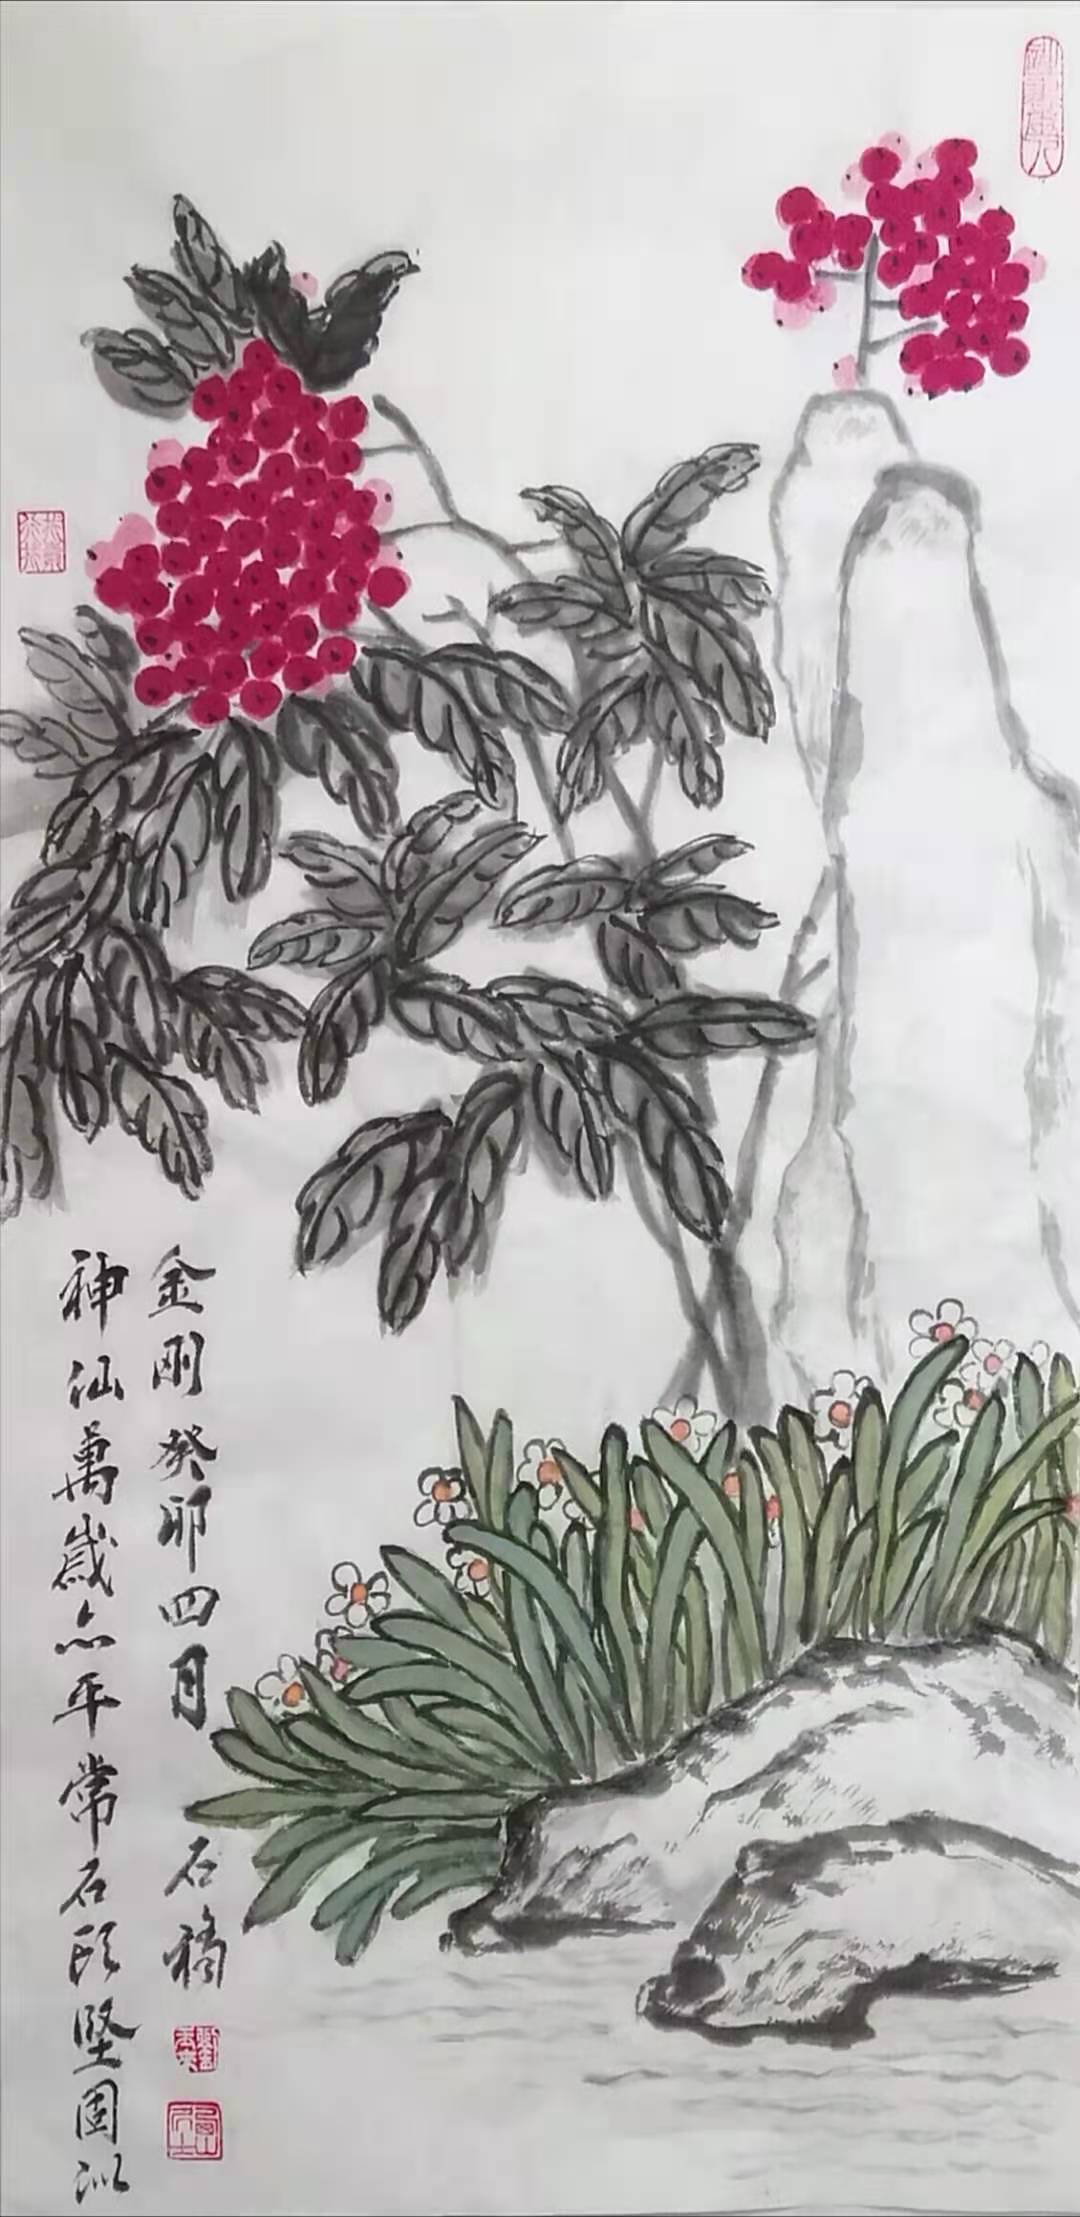 神仙萬歲亦平常石頭堅固似
金刚癸卯四月 石